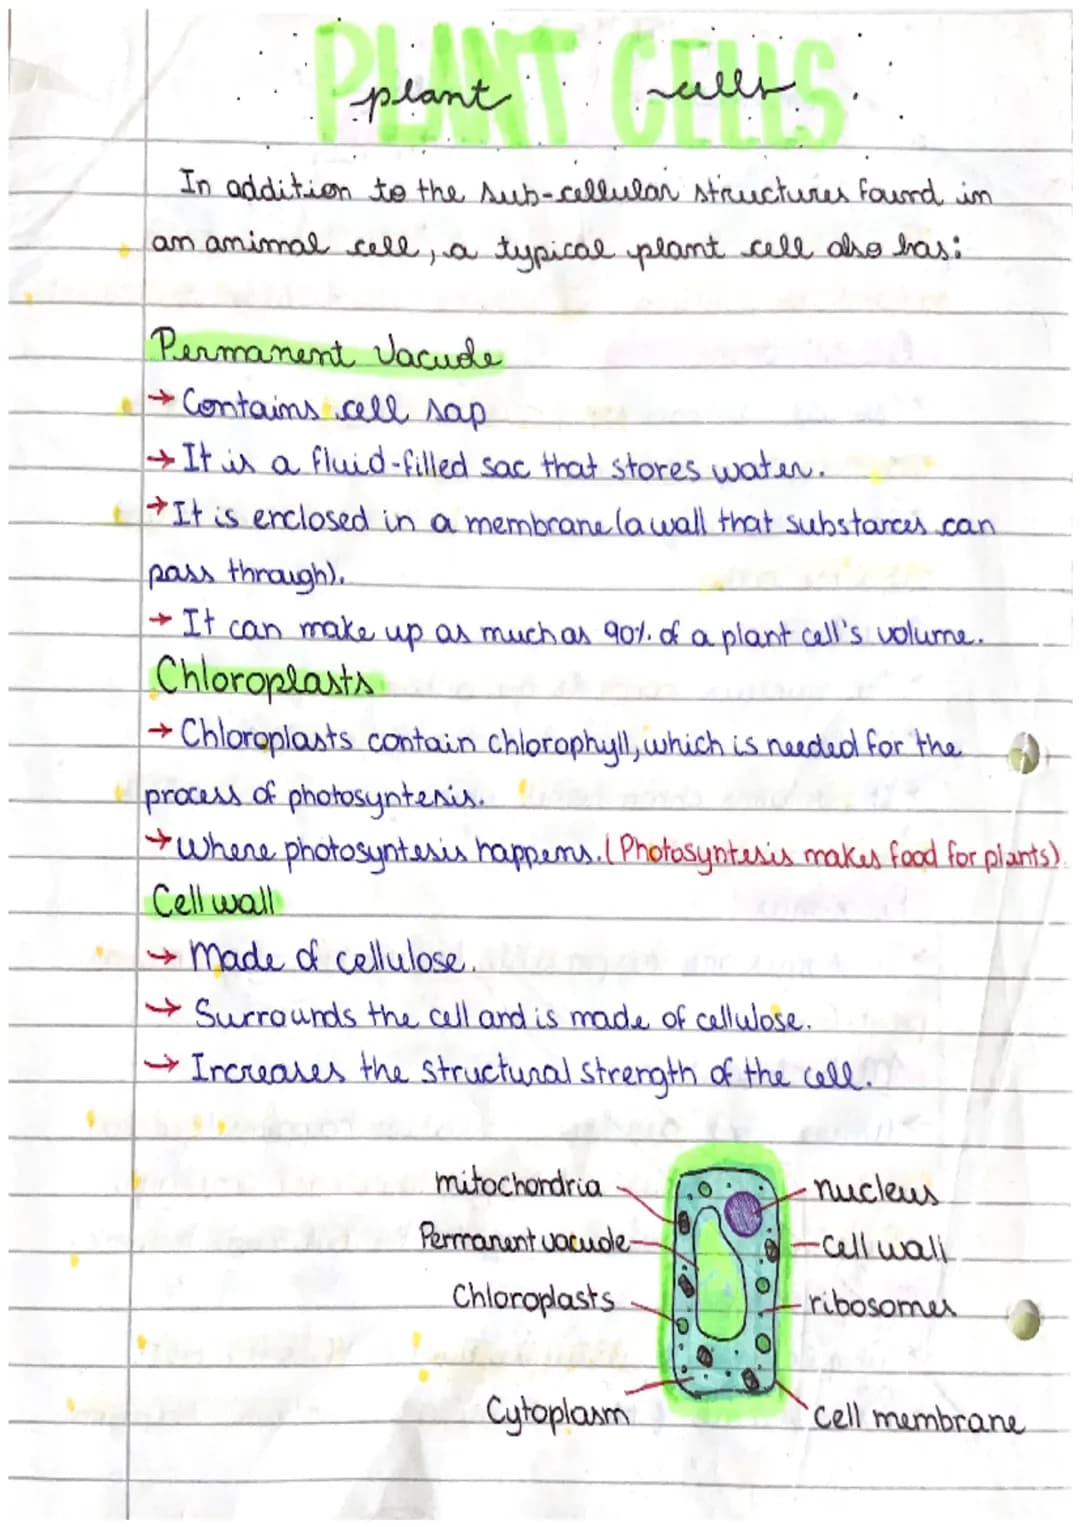 PLANT CELLS
plant cells
In addition to the sub-cellular structures found in
an animal cell, a typical plant cell also has:
Permanent Vacuole
→ Contains cell sap
→ It is a fluid-filled sac that stores water.
→ It is enclosed in a membrane (a wall that substances can
pass through).
→ It can make up as much as 90% of a plant cell's volume.
Chloroplasts
→ Chloroplasts contain chlorophyll, which is needed for the
process of photosyntesis.
→ Where photosyntesis happens. (Photosyntesis makes food for plants).
Cell wall
→ Made of cellulose.
→ Surrounds the cell and is made of cellulose.
→ Increases the structural strength of the cell.
mitochondria
nucleus
Permanent vacuole
cell wall
Chloroplasts
ribosomes
Cytoplasm
Cell membrane